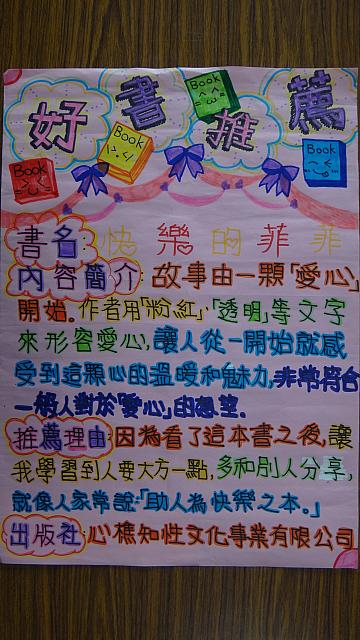 好書推薦
Book
Book
Book
Book
書名:快樂的菲菲
內容簡介:故事由一顆「愛心」
開始。作者用「粉紅」、「透明」等文字
來形容愛心,讓人從一開始就感
受到這顆心的溫暖和魅力,非常符合
一般人對於「愛心」的想望。
推薦理由:因為看了這本書之後,讓
我學習到人要大方一點,多和別人分享,
就像人家常說:「助人為快樂之本。」
出版社:心樵知性文化事業有限公司